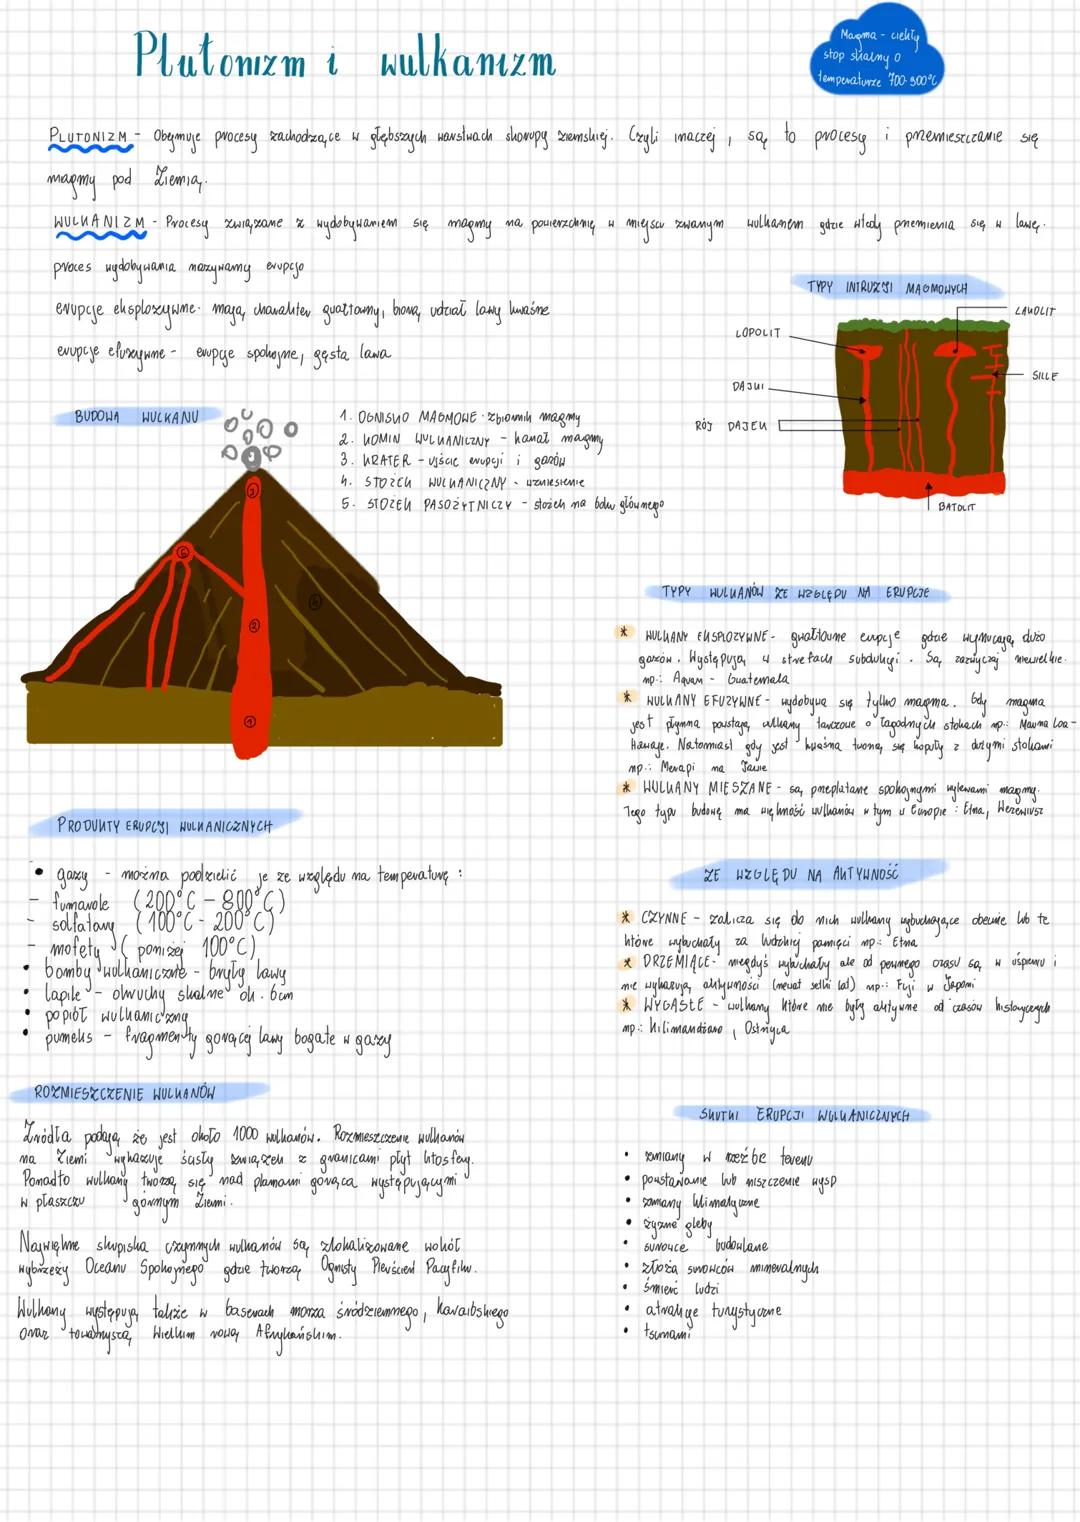 Plutonizm i wulkanizm
Magma - ciekły
stop skalny o
temperaturze 700-900°C
PLUTONIZM - Obejmuje procesy zachodzące w głębszych warstwach skorupy ziemskiej. Czyli inaczej, są to procesy i przemieszczanie się
magmy pod Ziemią.
WULKANIZM - Procesy związane z wydobywaniem się magmy na powierzchnię w miejscu zwanym wulkanem gdzie wtedy przemienia się w lawę.
proces wydobywania nazywamy erupcjo
erupcje eksplozywne - mają charakter gwałtowny, biorą udział lawy kwaśne
erupcje efuzywne - erupcje spokojne, gęsta lawa
TYPY INTRUZJI MAGMOWYCH
LOPOLIT
LAKOLIT
DAJKI
SILLE
RÓJ DAJEK
BATOLIT
BUDOWA WULKANU
1. OGNISKO MAGMOWE - zbiornik magmy
2. KOMIN WULKANICZNY - kanał magmy
3. KRATER - ujście erupcji i gazów
4. STOŻEK WULKANICZNY - wzniesienie
5. STOŻEK PASOŻYTNICZY - stożek na boku głównego
3
2
1
4
TYPY WULKANÓW ZE WZGLĘDU NA ERUPCJE
* WULKANY EKSPLOZYWNE - gwałtowne erupcje gdzie wyrzucają dużo
gazów. Występują w strefach subdukcji. Są zazwyczaj niewielkie.
np.: - Guatemala
* WULKANY EFUZYWNE - wydobywa się tylko magma. Gdy magma
jest płynna powstają wulkany tarczowe o łagodnych stokach np.: Mauna Loa -
Hawaje. Natomiast gdy jest kwaśna tworzą się kopuły z dużymi stokami
np.: Merapi na Jawie
* WULKANY MIESZANE - są przeplatane spokojnymi wylewami magmy.
Tego typu budowę ma większość wulkanów w tym w Europie: Etna, Wezewiusz
PRODUKTY ERUPCJI WULKANICZNYCH
• gazy - można podzielić je ze względu na temperaturę:
- fumarole (200°C - 800°C)
- solfatary (100°C - 200°C)
- mofety (poniżej 100°C)
• bomby wulkaniczne - bryły lawy
• lapile - okruchy skalne ok. 6cm
• popiół wulkaniczny
• pumeks - fragmenty gorącej lawy bogate w gazy
ZE WZGLĘDU NA AKTYWNOŚĆ
* CZYNNE - zalicza się do nich wulkany wybuchające obecnie lub te
które wybuchały za ludzkiej pamięci np.: Etna
* DRZEMIĄCE - niegdyś wybuchały ale od pewnego czasu są w uśpieniu i
nie wykazują aktywności (nawet setki lat) np.: Fuji w Japonii
* WYGASŁE - wulkany które nie były aktywne od czasów historycznych
np.: Kilimandżaro, Ostrzyca
ROZMIESZCZENIE WULKANÓW
Źródła podają że jest około 1000 wulkanów. Rozmieszczenie wulkanów
na Ziemi wykazuje ścisły związek z granicami płyt litosfery.
Ponadto wulkany tworzą się nad plamami gorąca występującymi
w płaszczu górnym Ziemi.
Największe skupiska czynnych wulkanów są zlokalizowane wokół
wybrzeży Oceanu Spokojnego gdzie tworzą Ognisty Pierścień Pacyfiku.
Wulkany występują także w basenach morza śródziemnego, karaibskiego
oraz towarzyszą Wielkim rową Afrykańskim.
SKUTKI ERUPCJI WULKANICZNYCH
• zmiany w rzeźbie terenu
• powstawanie lub niszczenie wysp
• zmiany klimatyczne
• żyzne gleby
• surowce budowlane
• złoża surowców mineralnych
• śmierć ludzi
• atrakcje turystyczne
• tsunami